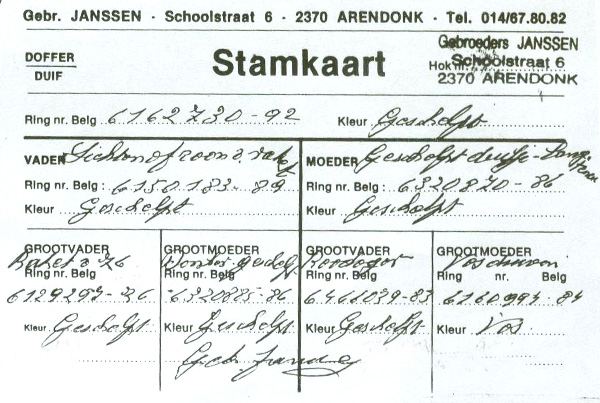 Gebr. JANSSEN · Schoolstraat 6 · 2370 ARENDONK · Tel. 014/67.80.82
DOFFER
DUIF
Stamkaart
Gebroeders JANSSEN
Hok nr.
Schoolstraat 6
2370 ARENDONK
Ring nr. Belg 6162730-92 Kleur Geschelpt
VADER
Ring nr. Belg : 6150183-89
Kleur Geschelpt
MOEDER Geschelpt
Ring nr. Belg : 6320820-86
Kleur Geschelpt
GROOTVADER
Ring nr. Belg
Kleur Geschelpt
GROOTMOEDER
Ring nr. Belg
6320885-86
Kleur Geschelpt
GROOTVADER
Ring nr. Belg
6466039-83
Kleur Geschelpt
GROOTMOEDER
Ring nr. Belg
6160994-84
Kleur Vos